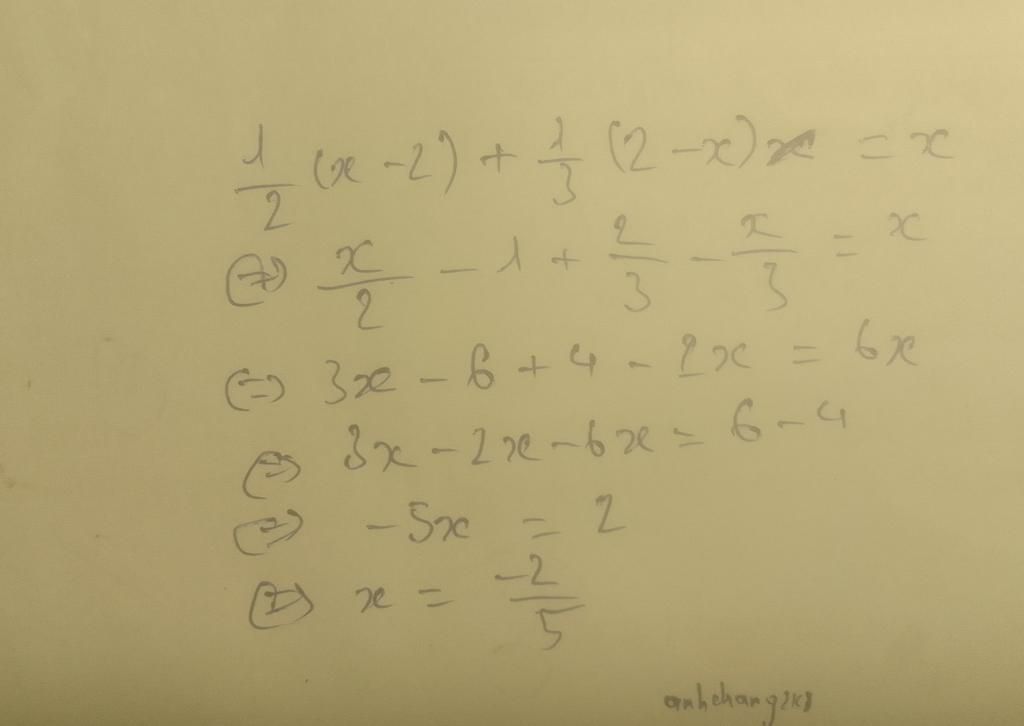 1/2 (x - 2) + 1/3 (2 - x) = x
(=) x/2 - 1 + 2/3 - x/3 = x
(=) 3x - 6 + 4 - 2x = 6x
(=) 3x - 2x - 6x = 6 - 4
(=) -5x = 2
(=) x = -2/5
anhchang2k8